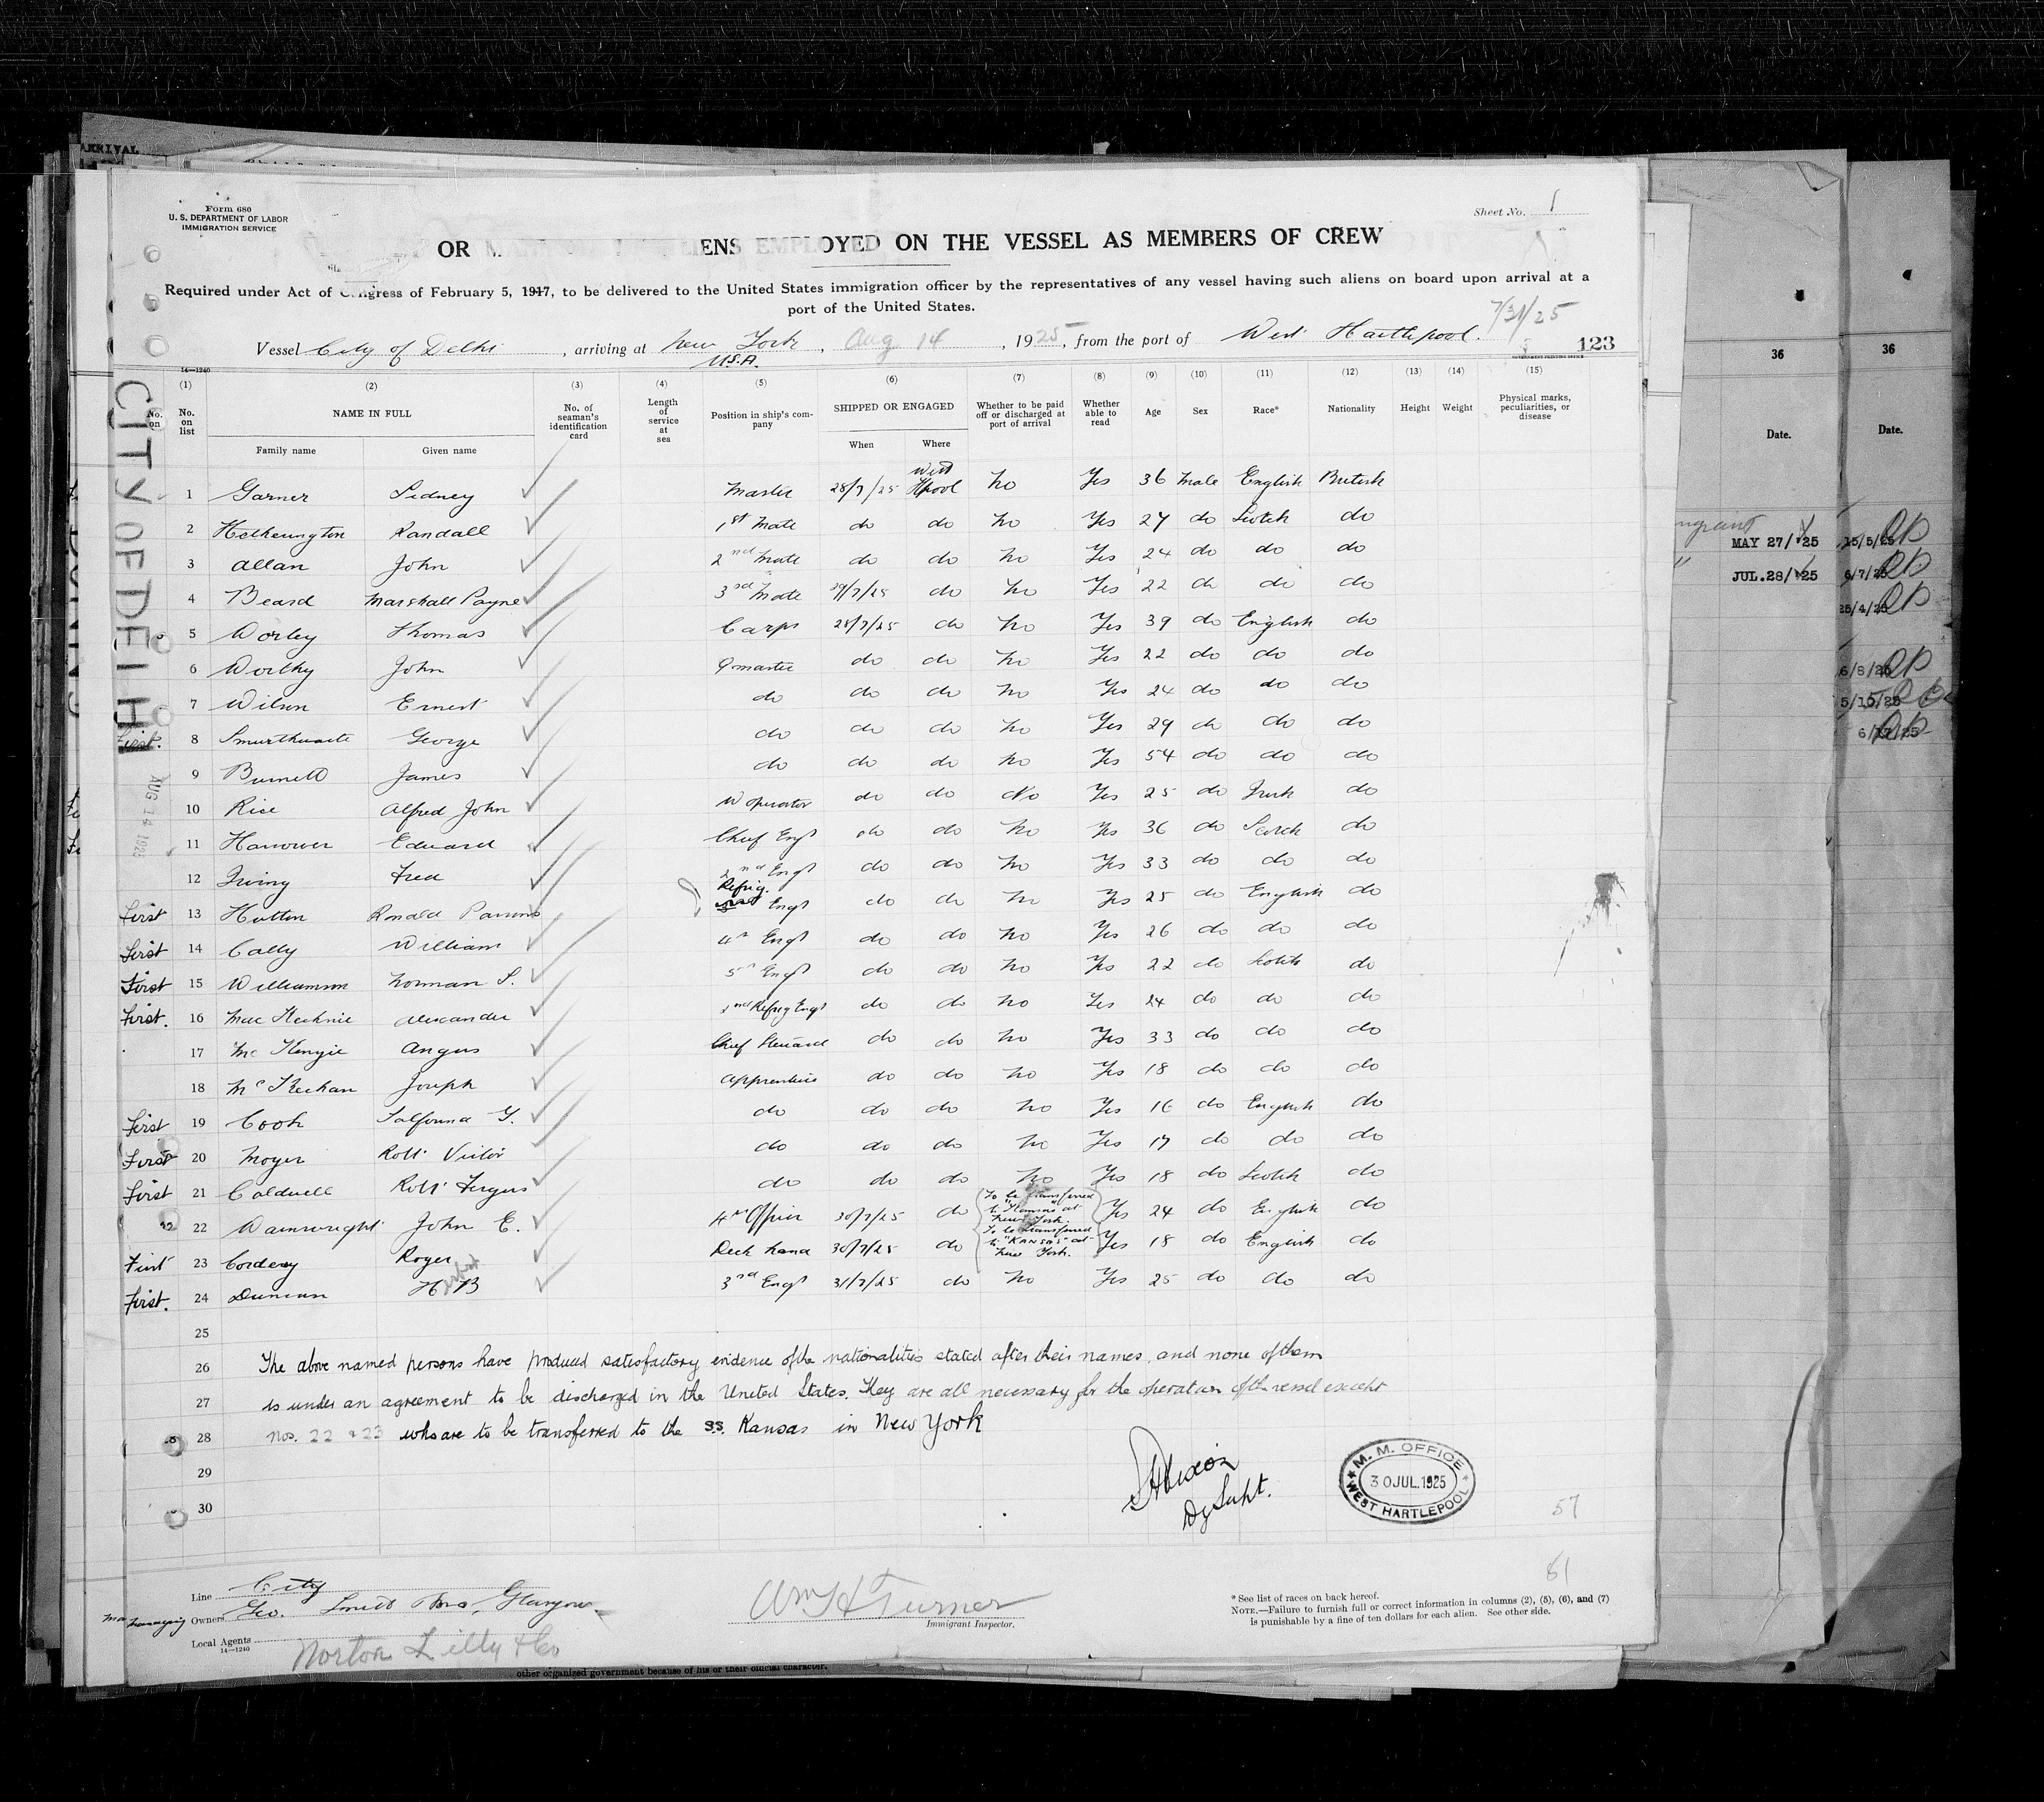 ARRIVAL
Form 680
U. S. DEPARTMENT OF LABOR
IMMIGRATION SERVICE
Sheet No. 1
OR LIENS EMPLOYED ON THE VESSEL AS MEMBERS OF CREW
Required under Act of Congress of February 5, 1917, to be delivered to the United States immigration officer by the representatives of any vessel having such aliens on board upon arrival at a
port of the United States.
7/31/25
Vessel City of Delhi, arriving at New York, Aug 14, 1925, from the port of West Hartlepool.
U.S.A.
123
14—1240
CITY OF DELHI
AUG 14 1925
(1) (2) (3) (4) (5) (6) (7) (8) (9) (10) (11) (12) (13) (14) (15)
No. on list NAME IN FULL No. of seaman's identification card Length of service at sea Position in ship's company SHIPPED OR ENGAGED Whether to be paid off or discharged at port of arrival Whether able to read Age Sex Race* Nationality Height Weight Physical marks, peculiarities, or disease
Family name Given name When Where
1 Garner Sidney Master 28/7/25 West Hpool No Yes 36 Male English British
2 Hetherington Randall 1st Mate do do No Yes 27 do Scotch do
3 Allan John 2nd Mate do do No Yes 24 do do do
4 Beard Marshall Payne 3rd Mate 29/7/25 do No Yes 22 do do do
5 Worley Thomas Carps 28/7/25 do No Yes 39 do English do
6 Worthy John Q master do do No Yes 22 do do do
7 Wilson Ernest do do do No Yes 24 do do do
First. 8 Smurthwaite George do do do No Yes 29 do do do
9 Burnett James do do do No Yes 54 do do do
10 Rice Alfred John W operator do do No Yes 25 do Irish do
11 Hanower Edward Chief Engr do do No Yes 36 do Scotch do
12 Irving Fred 2nd Engr do do No Yes 33 do do do
First 13 Hutton Ronald Parsons Refrig. Engr do do No Yes 25 do English do
First 14 Cally William 4th Engr do do No Yes 26 do do do
First 15 Williamson Norman S. 5th Engr do do No Yes 22 do Scotch do
First. 16 Mac Kechnie Alexander 2nd Refrig Engr do do No Yes 24 do do do
17 Mc Kenzie Angus Chief Steward do do No Yes 33 do do do
18 McKechan Joseph Apprentice do do No Yes 18 do do do
First 19 Cook Y. do do do No Yes 16 do English do
First 20 Moyer Robt Victor do do do No Yes 17 do do do
First 21 Caldwell Robt Fergus do do do No Yes 18 do Scotch do
22 Wainwright John E. 4th Officer 30/7/25 do To be transferred to "Kansas" at New York. Yes 24 do English do
First 23 Corderoy Roger Deck hand 30/7/25 do To be transferred to "KANSAS" at New York. Yes 18 do English do
First. 24 Duncan H B 3rd Engr 31/7/25 do No Yes 25 do do do
25
26 The above named persons have produced satisfactory evidence of the nationalities stated after their names, and none of them
27 is under an agreement to be discharged in the United States. They are all necessary for the operation of the vessel except
28 Nos. 22 & 23 who are to be transferred to the S.S. Kansas in New York
29
30
Dy Supt.
M. M. OFFICE
30 JUL. 1925
WEST HARTLEPOOL
57
61
Line City
Managing Owners Geo. Smith & Sons, Glasgow
Local Agents Norton Lilly & Co
14—1240
Wm H Turner
Immigrant Inspector.
* See list of races on back hereof.
NOTE.—Failure to furnish full or correct information in columns (2), (5), (6), and (7)
is punishable by a fine of ten dollars for each alien. See other side.
other organized government because of his or their official character.
36
Date.
MAY 27/25
JUL. 28/25
36
Date.
15/5/25
6/7/25
25/4/25
6/8/25
5/10/25